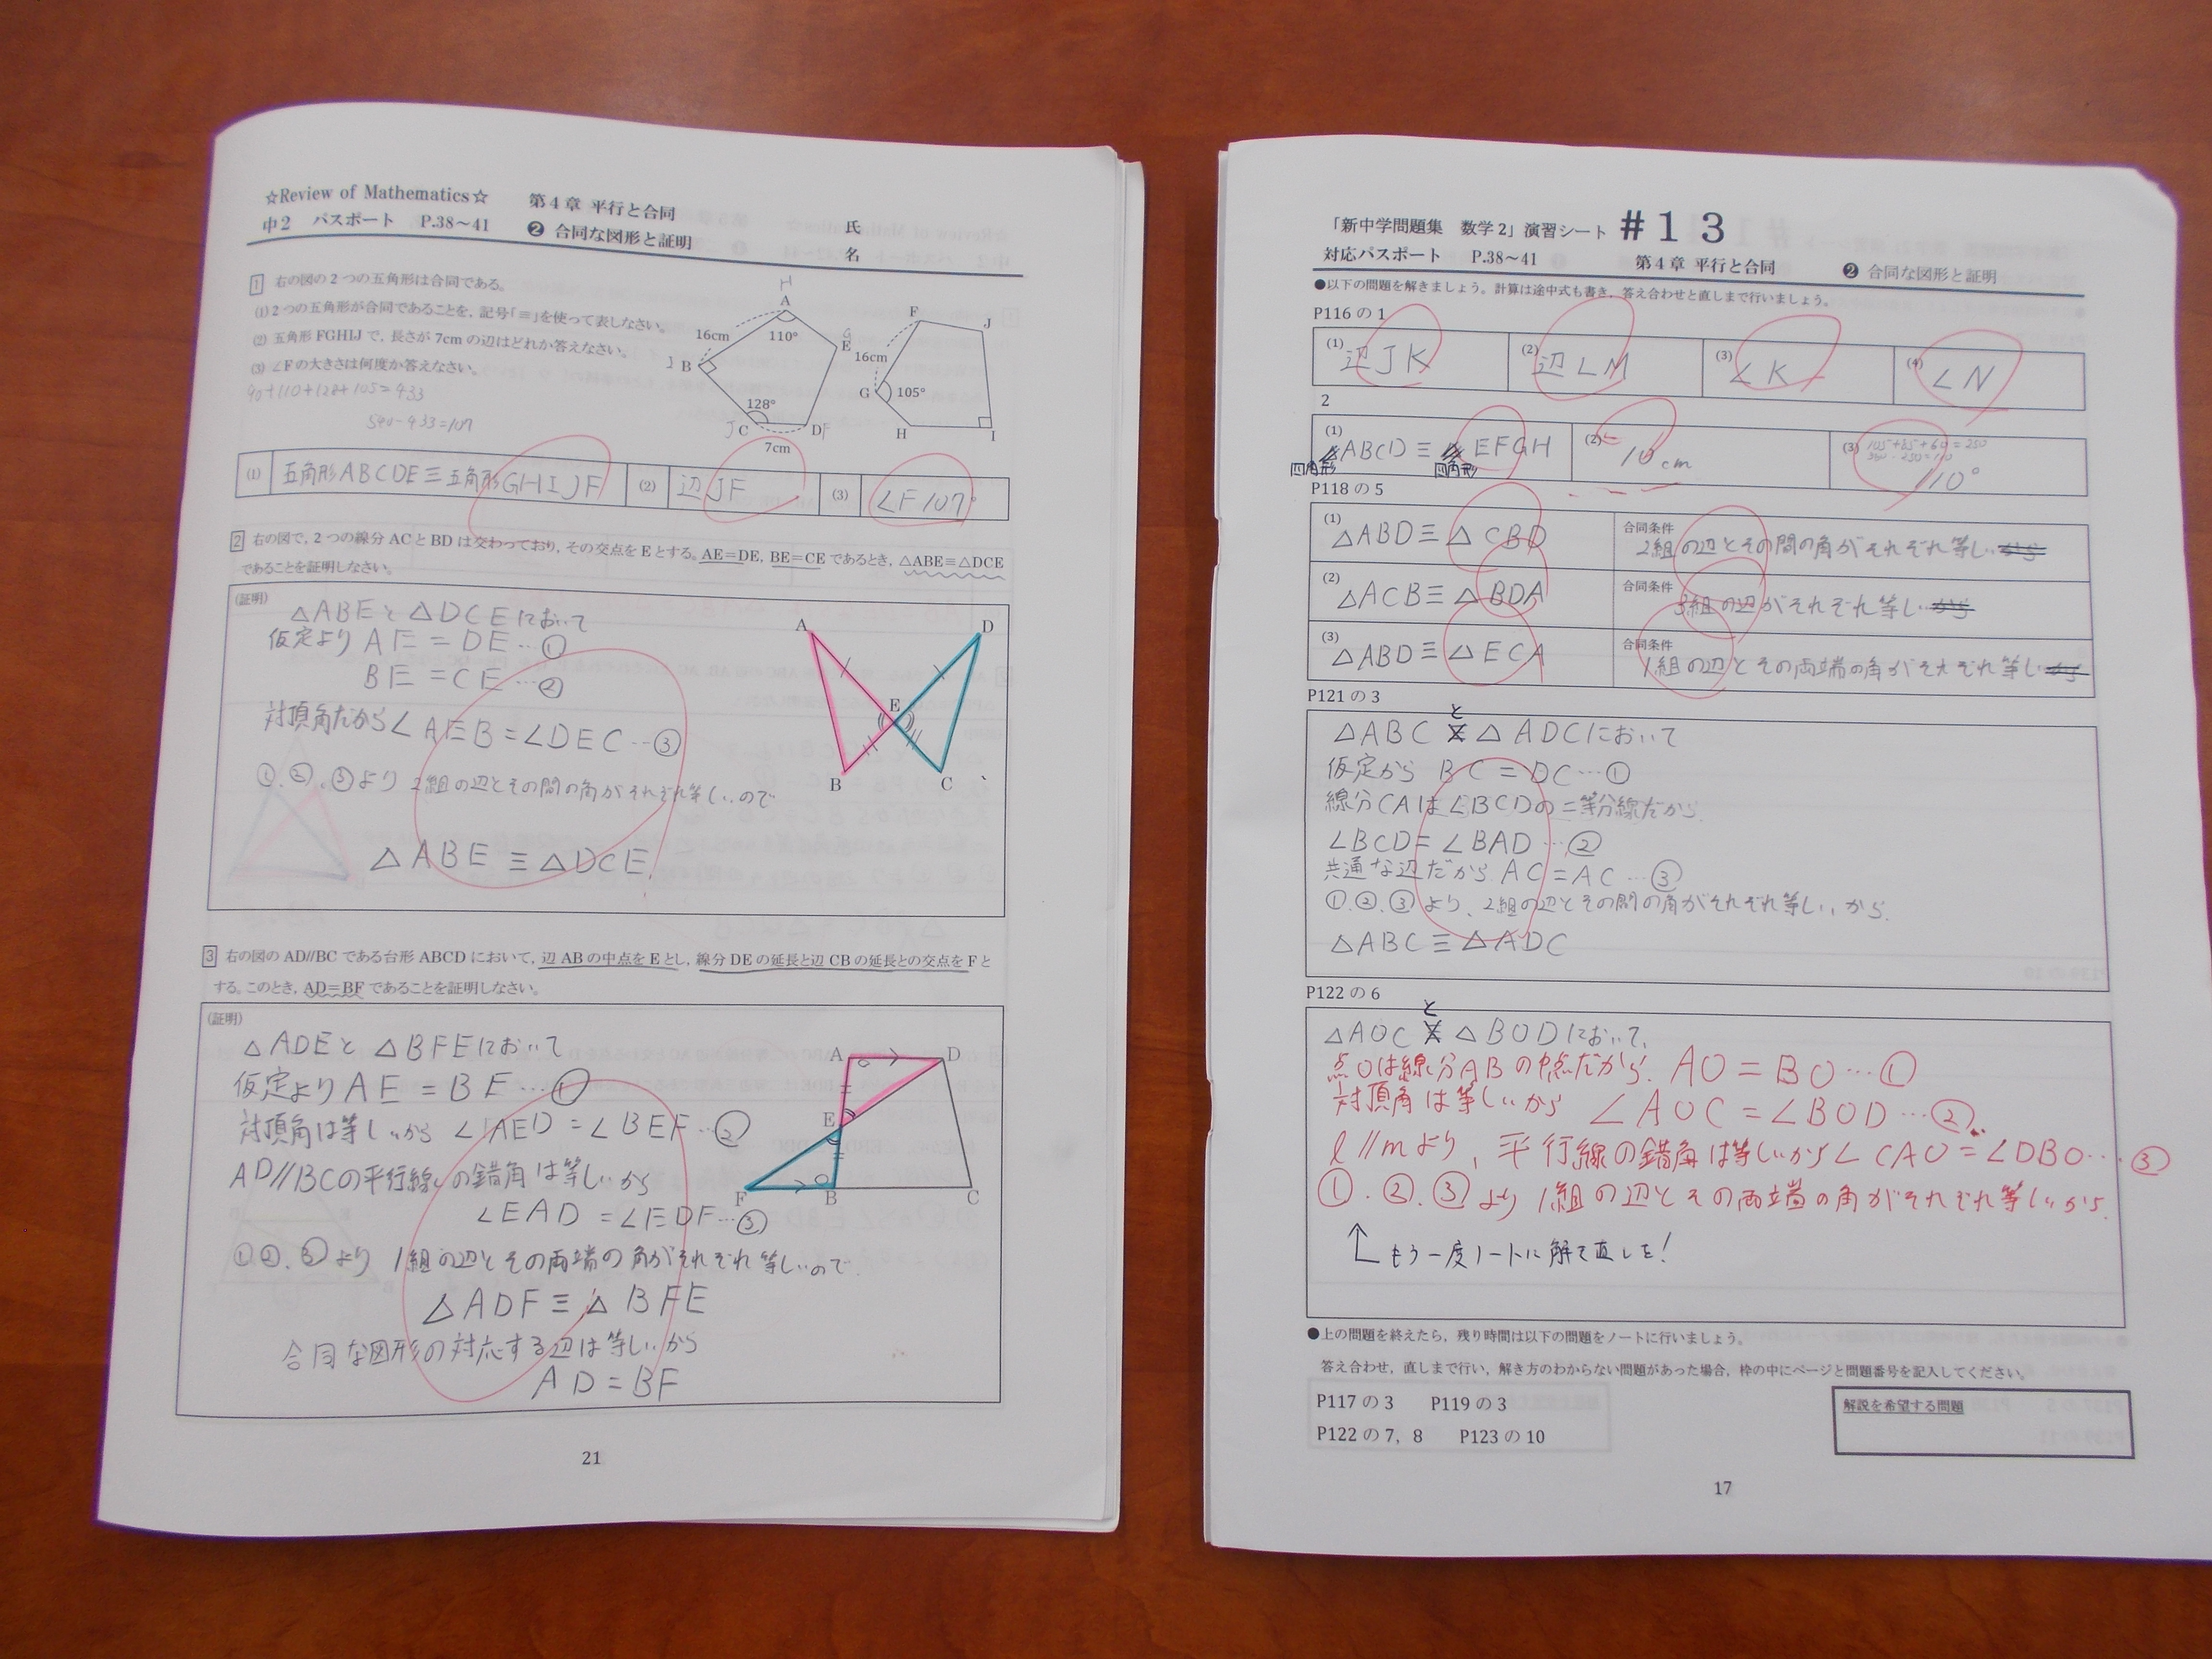 ☆Review of Mathematics☆
中2 パスポート P.38〜41
第4章 平行と合同
❷ 合同な図形と証明
氏
名
1 右の図の2つの五角形は合同である。
(1) 2つの五角形が合同であることを,記号「≡」を使って表しなさい。
(2) 五角形 FGHIJ で,長さが 7cm の辺はどれか答えなさい。
(3) ∠F の大きさは何度か答えなさい。
90+110+128+105=433
540-433=107
H
A
16cm
110°
G
E
J
B
128°
J
C
D
F
7cm
F
J
16cm
G
105°
H
I
(1) 五角形ABCDE≡五角形GHIJF
(2) 辺JF
(3) ∠F 107°
2 右の図で,2つの線分 AC と BD は交わっており,その交点を E とする。AE=DE,BE=CE であるとき,△ABE≡△DCE
であることを証明しなさい。
(証明)
△ABEと△DCEにおいて
仮定より AE = DE …①
BE = CE …②
対頂角だから∠AEB=∠DEC…③
①,②,③より 2組の辺とその間の角がそれぞれ等しいので
△ABE ≡ △DCE
A
D
E
B
C
3 右の図の AD//BC である台形 ABCD において,辺 AB の中点を E とし,線分 DE の延長と辺 CB の延長との交点を F と
する。このとき,AD=BF であることを証明しなさい。
(証明)
△ADEと △BFEにおいて
仮定より AE = BE …①
対頂角は等しいから ∠AED = ∠BEF …②
AD//BCの平行線の錯角は等しいから
∠EAD = ∠EDF…③
①②,③より 1組の辺とその両端の角がそれぞれ等しいので
△ADF ≡ △BFE
合同な図形の対応する辺は等しいから
AD = BF
A
D
E
F
B
C
21
「新中学問題集 数学2」演習シート #13
対応パスポート P.38〜41
第4章 平行と合同
❷ 合同な図形と証明
●以下の問題を解きましょう。計算は途中式も書き,答え合わせと直しまで行いましょう。
P116 の 1
(1) 辺JK
(2) 辺LM
(3) ∠K
(4) ∠N
2
(1) ABCD ≡ EFGH
四角形
四角形
(2) 10cm
(3) 105+85+60=250
360-250=110
110°
P118 の 5
(1) △ABD≡△CBD
合同条件
2組の辺とその間の角がそれぞれ等しい から
(2) △ACB≡△BDA
合同条件
3組の辺がそれぞれ等しい から
(3) △ABD≡△ECA
合同条件
1組の辺とその両端の角がそれぞれ等しい から
P121 の 3
と
△ABC △ADCにおいて
仮定から BC = DC …①
線分CAは∠BCDの二等分線だから
∠BCD= ∠BAD …②
共通な辺だから AC = AC …③
①.②.③より、2組の辺とその間の角がそれぞれ等しいから
△ABC ≡ △ADC
P122 の 6
と
△AOC △BODにおいて,
点Oは線分ABの中点だから AO = BO …①
対頂角は等しいから ∠AOC = ∠BOD …②
l//mより,平行線の錯角は等しいから∠CAO=∠DBO…③
①.②.③より 1組の辺とその両端の角がそれぞれ等しいから
↑もう一度ノートに解き直しを!
●上の問題を終えたら,残り時間は以下の問題をノートに行いましょう。
答え合わせ,直しまで行い,解き方のわからない問題があった場合,枠の中にページと問題番号を記入してください。
P117 の 3 P119 の 3
P122 の 7,8 P123 の 10
解説を希望する問題
17